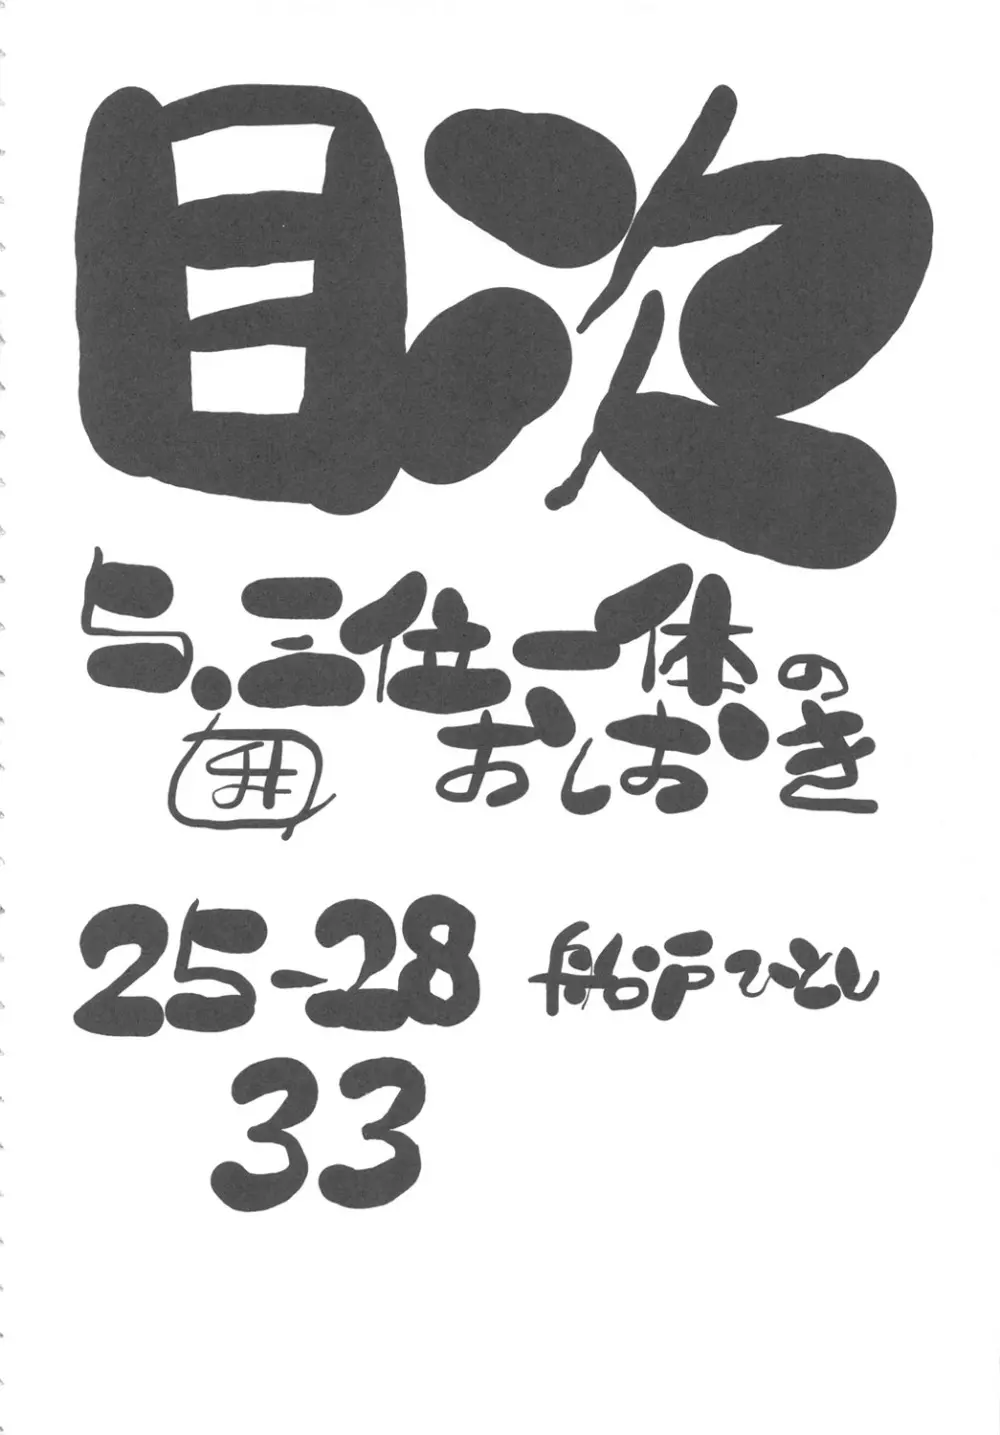 目次
5.三位一体の
おしおき
25-28 船戸ひとし
33